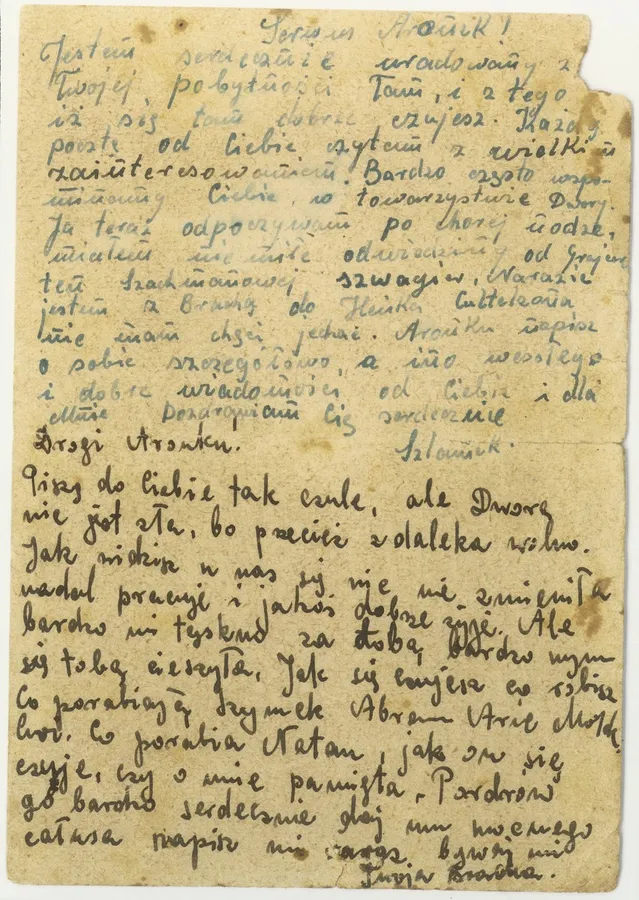 Serwus Aronik!
Jestem serdecznie uradowany z
Twojej pobytności Tam, i z tego
iż się tam dobrze czujesz. Każdą
pocztę od Ciebie czytem z wielkim
zainteresowaniem. Bardzo często wspo-
minamy Ciebie w towarzystwie Dwory.
Ja teraz odpoczywam po chorej nodze,
miałem nie miłe odwiedziny od
ten Szachmanowej szwagier, Narazie
jestem z Brachą do Heńka
nie mam chęci jechać. Aronku napisz
o sobie szczegółowo, a ino wesołego
i dobre wiadomości od Ciebie i dla
Mnie Pozdrawiam Cię serdecznie
Szlamek.
Drogi Aronku.
Piszę do Ciebie tak czule, ale Dworę
nie jest zła, bo przecież z daleka wolno.
Jak widzisz u nas się nic nie zmieniła
nadal pracuje i jakoś dobrze żyje. Ale
bardzo mi tęskno za tobą, bardzo bym
się tobą cieszyła. Jak się czujesz co robisz
Co porabiają Szymek Abram Arie
Co porabia Natan, jak on się
czuje, czy o mnie pamięta. Pozdrów
go bardzo serdecznie daj mu mocnego
całusa napisz mi zaraz bywaj mi
Twoja Bracha.